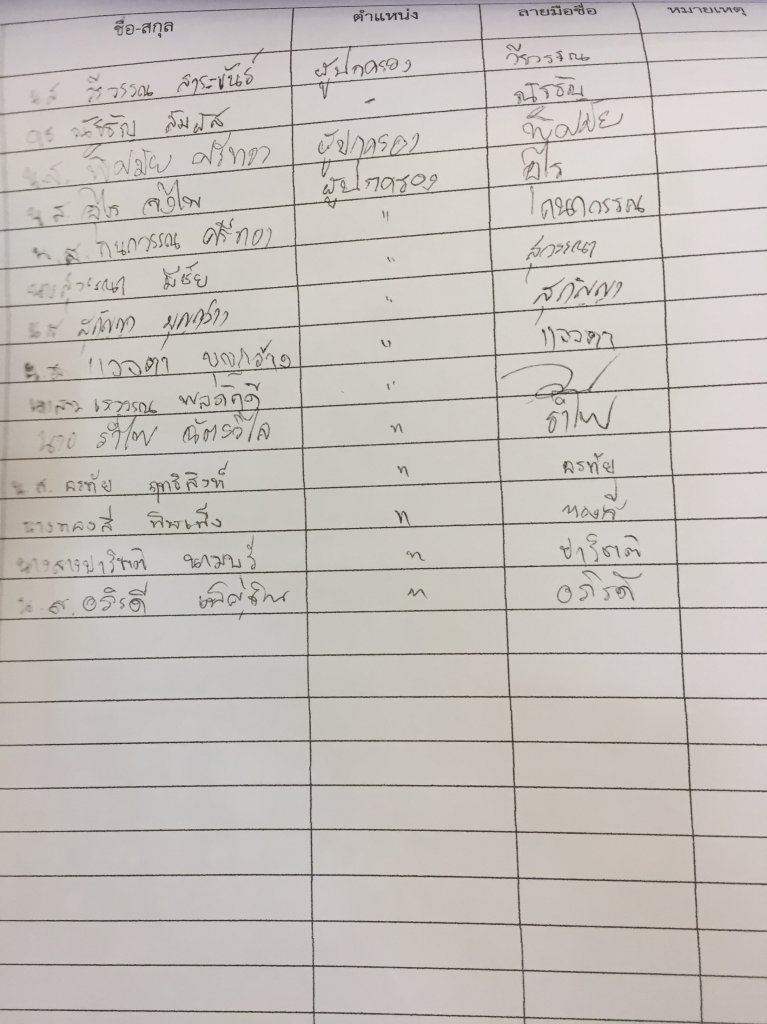 ชื่อ-สกุล ตำแหน่ง ลายมือชื่อ หมายเหตุ
น.ส. วีรวรรณ สาระขันธ์ ผู้ปกครอง วีรวรรณ
ณัฐธัญ สัมผัส " ณัฐธัญ
น.ส. พิศมัย ศรีทอง ผู้ปกครอง พิศมัย
น.ส. อุไร ผู้ปกครอง อุไร
น.ส. กนกวรรณ ศรีทอง " กนกวรรณ
นางสุวรรณา มีชัย " สุวรรณา
น.ส. สุกัญญา " สุกัญญา
น.ส. แววตา บุญกว้าง " แววตา
นางสาว เรวรรณ พลศักดิ์ "
นาง รำไพ ฉัตรวิไล " รำไพ
น.ส. อรทัย ฤทธิสิงห์ " อรทัย
นางทองสี พิมเพ็ง " ทองสี
นางสาวปาริชาติ นามบุรี " ปาริชาติ
น.ส. อภิรดี " อภิรดี